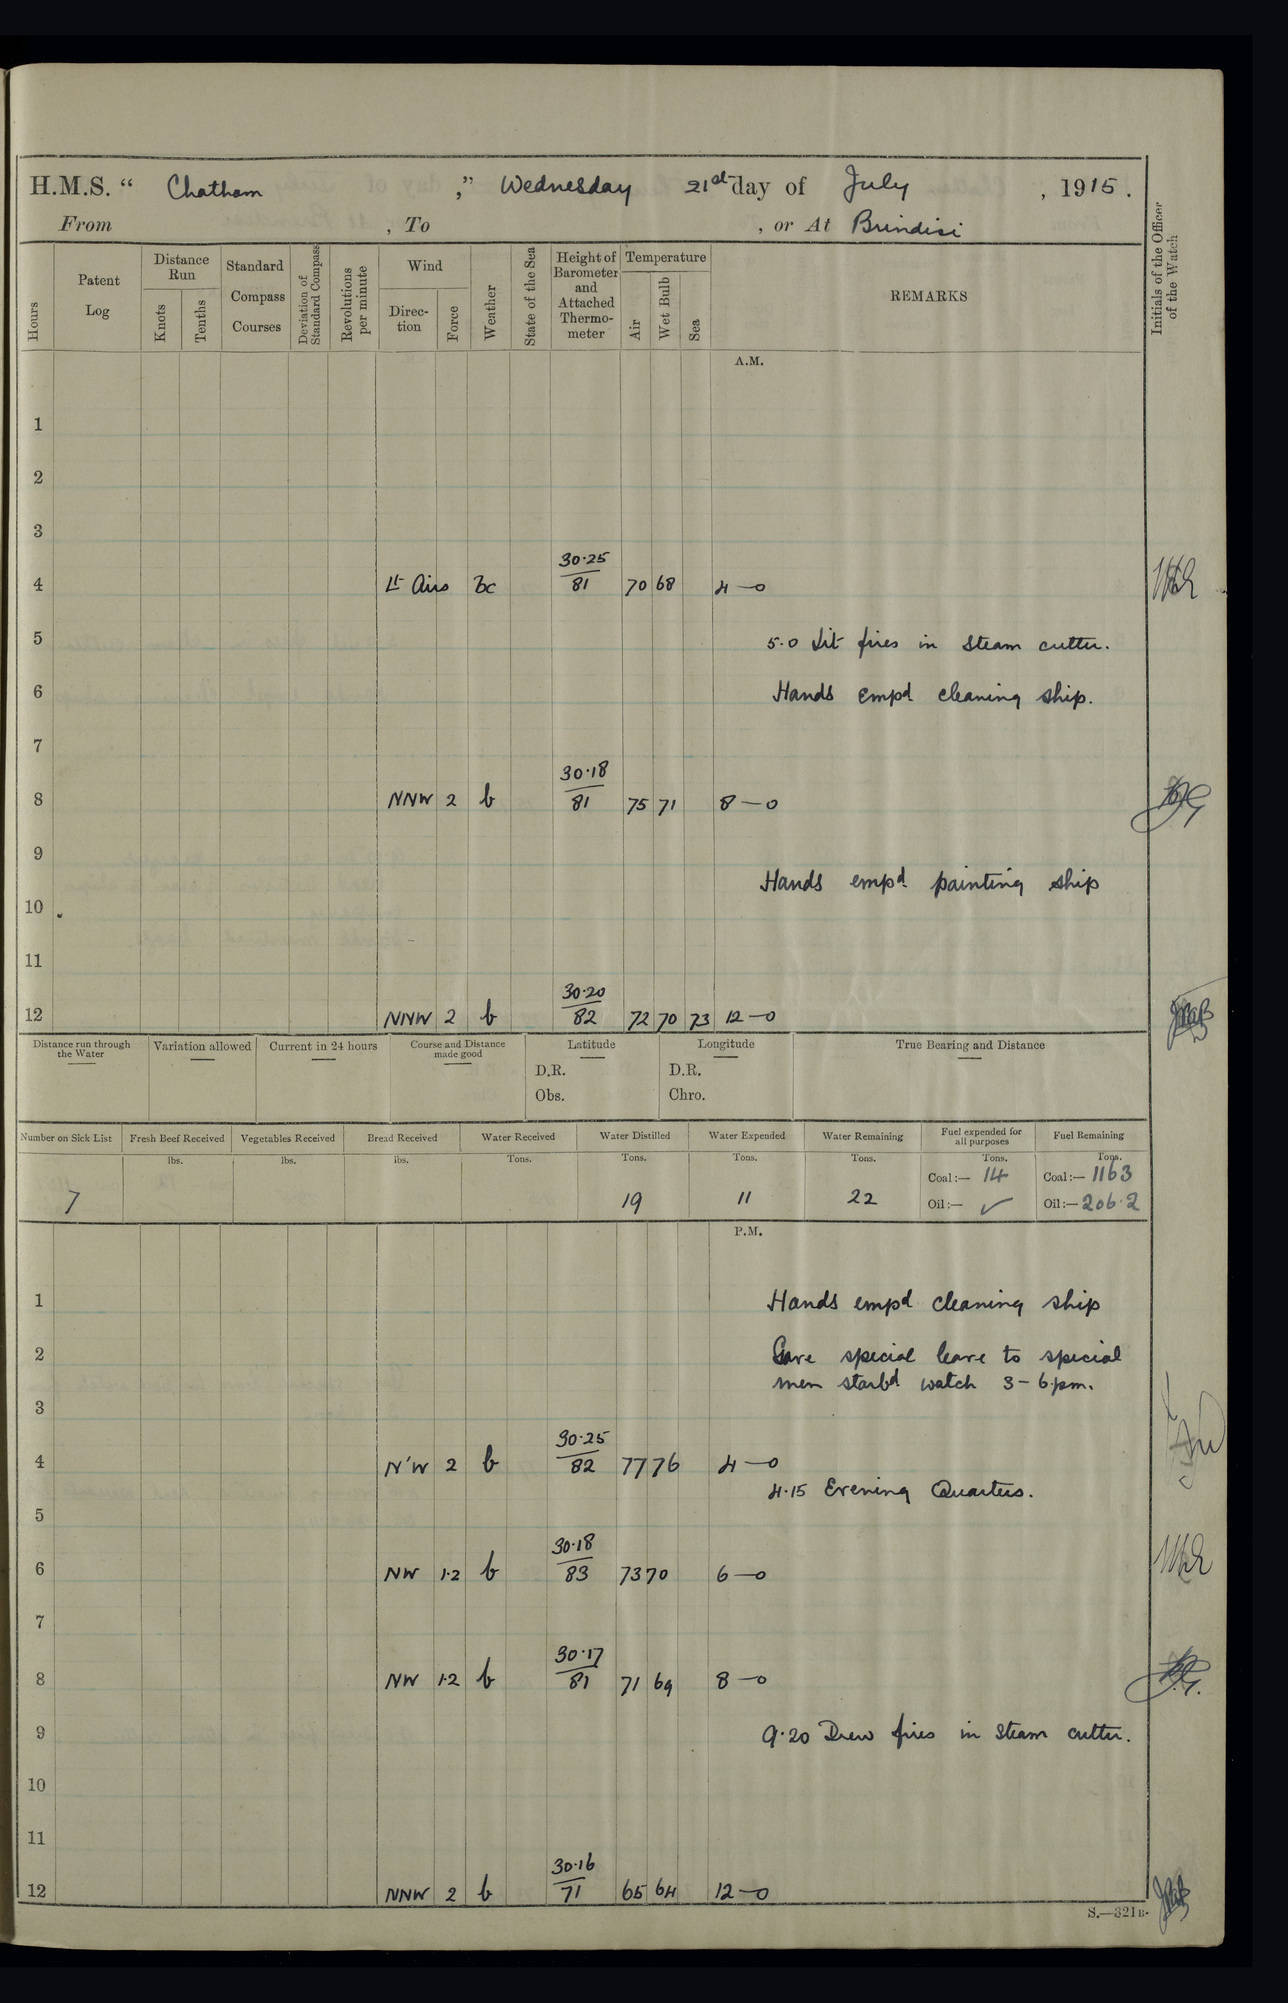 H.M.S. “ Chatham ,” Wednesday 21st day of July , 1915 .
From , To , or At Brindisi
Hours
Patent Log
Distance Run
Knots
Tenths
Standard Compass Courses
Deviation of Standard Compass
Revolutions per minute
Wind
Direction
Force
Weather
State of the Sea
Height of Barometer and Attached Thermometer
Temperature
Air
Wet Bulb
Sea
REMARKS
Initials of the Officer of the Watch
A.M.
1
2
3
4 Lt Airs bc 30·25 81 70 68 4—0
5 5·0 Lit fires in Steam cutter.
6 Hands empd cleaning ship.
7
8 NNW 2 b 30·18 81 75 71 8—0
9
Hands empd painting ship
10
11
12 NNW 2 b 30·20 82 72 70 73 12—0
Distance run through the Water
Variation allowed
Current in 24 hours
Course and Distance made good
Latitude
D.R.
Obs.
Longitude
D.R.
Chro.
True Bearing and Distance
Number on Sick List Fresh Beef Received Vegetables Received Bread Received Water Received Water Distilled Water Expended Water Remaining Fuel expended for all purposes Fuel Remaining
lbs. lbs. lbs. Tons. Tons. Tons. Tons. Tons. Tons.
7 19 11 22
Coal:— 14 Coal:— 1163
Oil:— ✓ Oil:— 206·2
P.M.
1 Hands empd cleaning ship
2 Gave special leave to special
men starbd watch 3 – 6 pm.
3
4 N'W 2 b 30·25 82 77 76 4—0
4·15 Evening Quarters.
5
6 NW 1·2 b 30·18 83 73 70 6—0
7
8 NW 1·2 b 30·17 81 71 69 8—0
9 9·20 Drew fires in Steam cutter.
10
11
12 NNW 2 b 30·16 71 65 64 12—0
S.—321B.